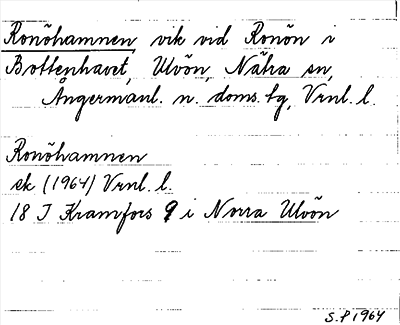 Ronöhamnen vik vid Ronön i
Bottenhavet, Ulvön, Nätra sn,
Ångermanl. n. doms. tg, Vrnl. l.
Ronöhamnen
ek (1964) Vrnl. l.
18 I Kramfors 9 i Norra Ulvön
S.P 1964